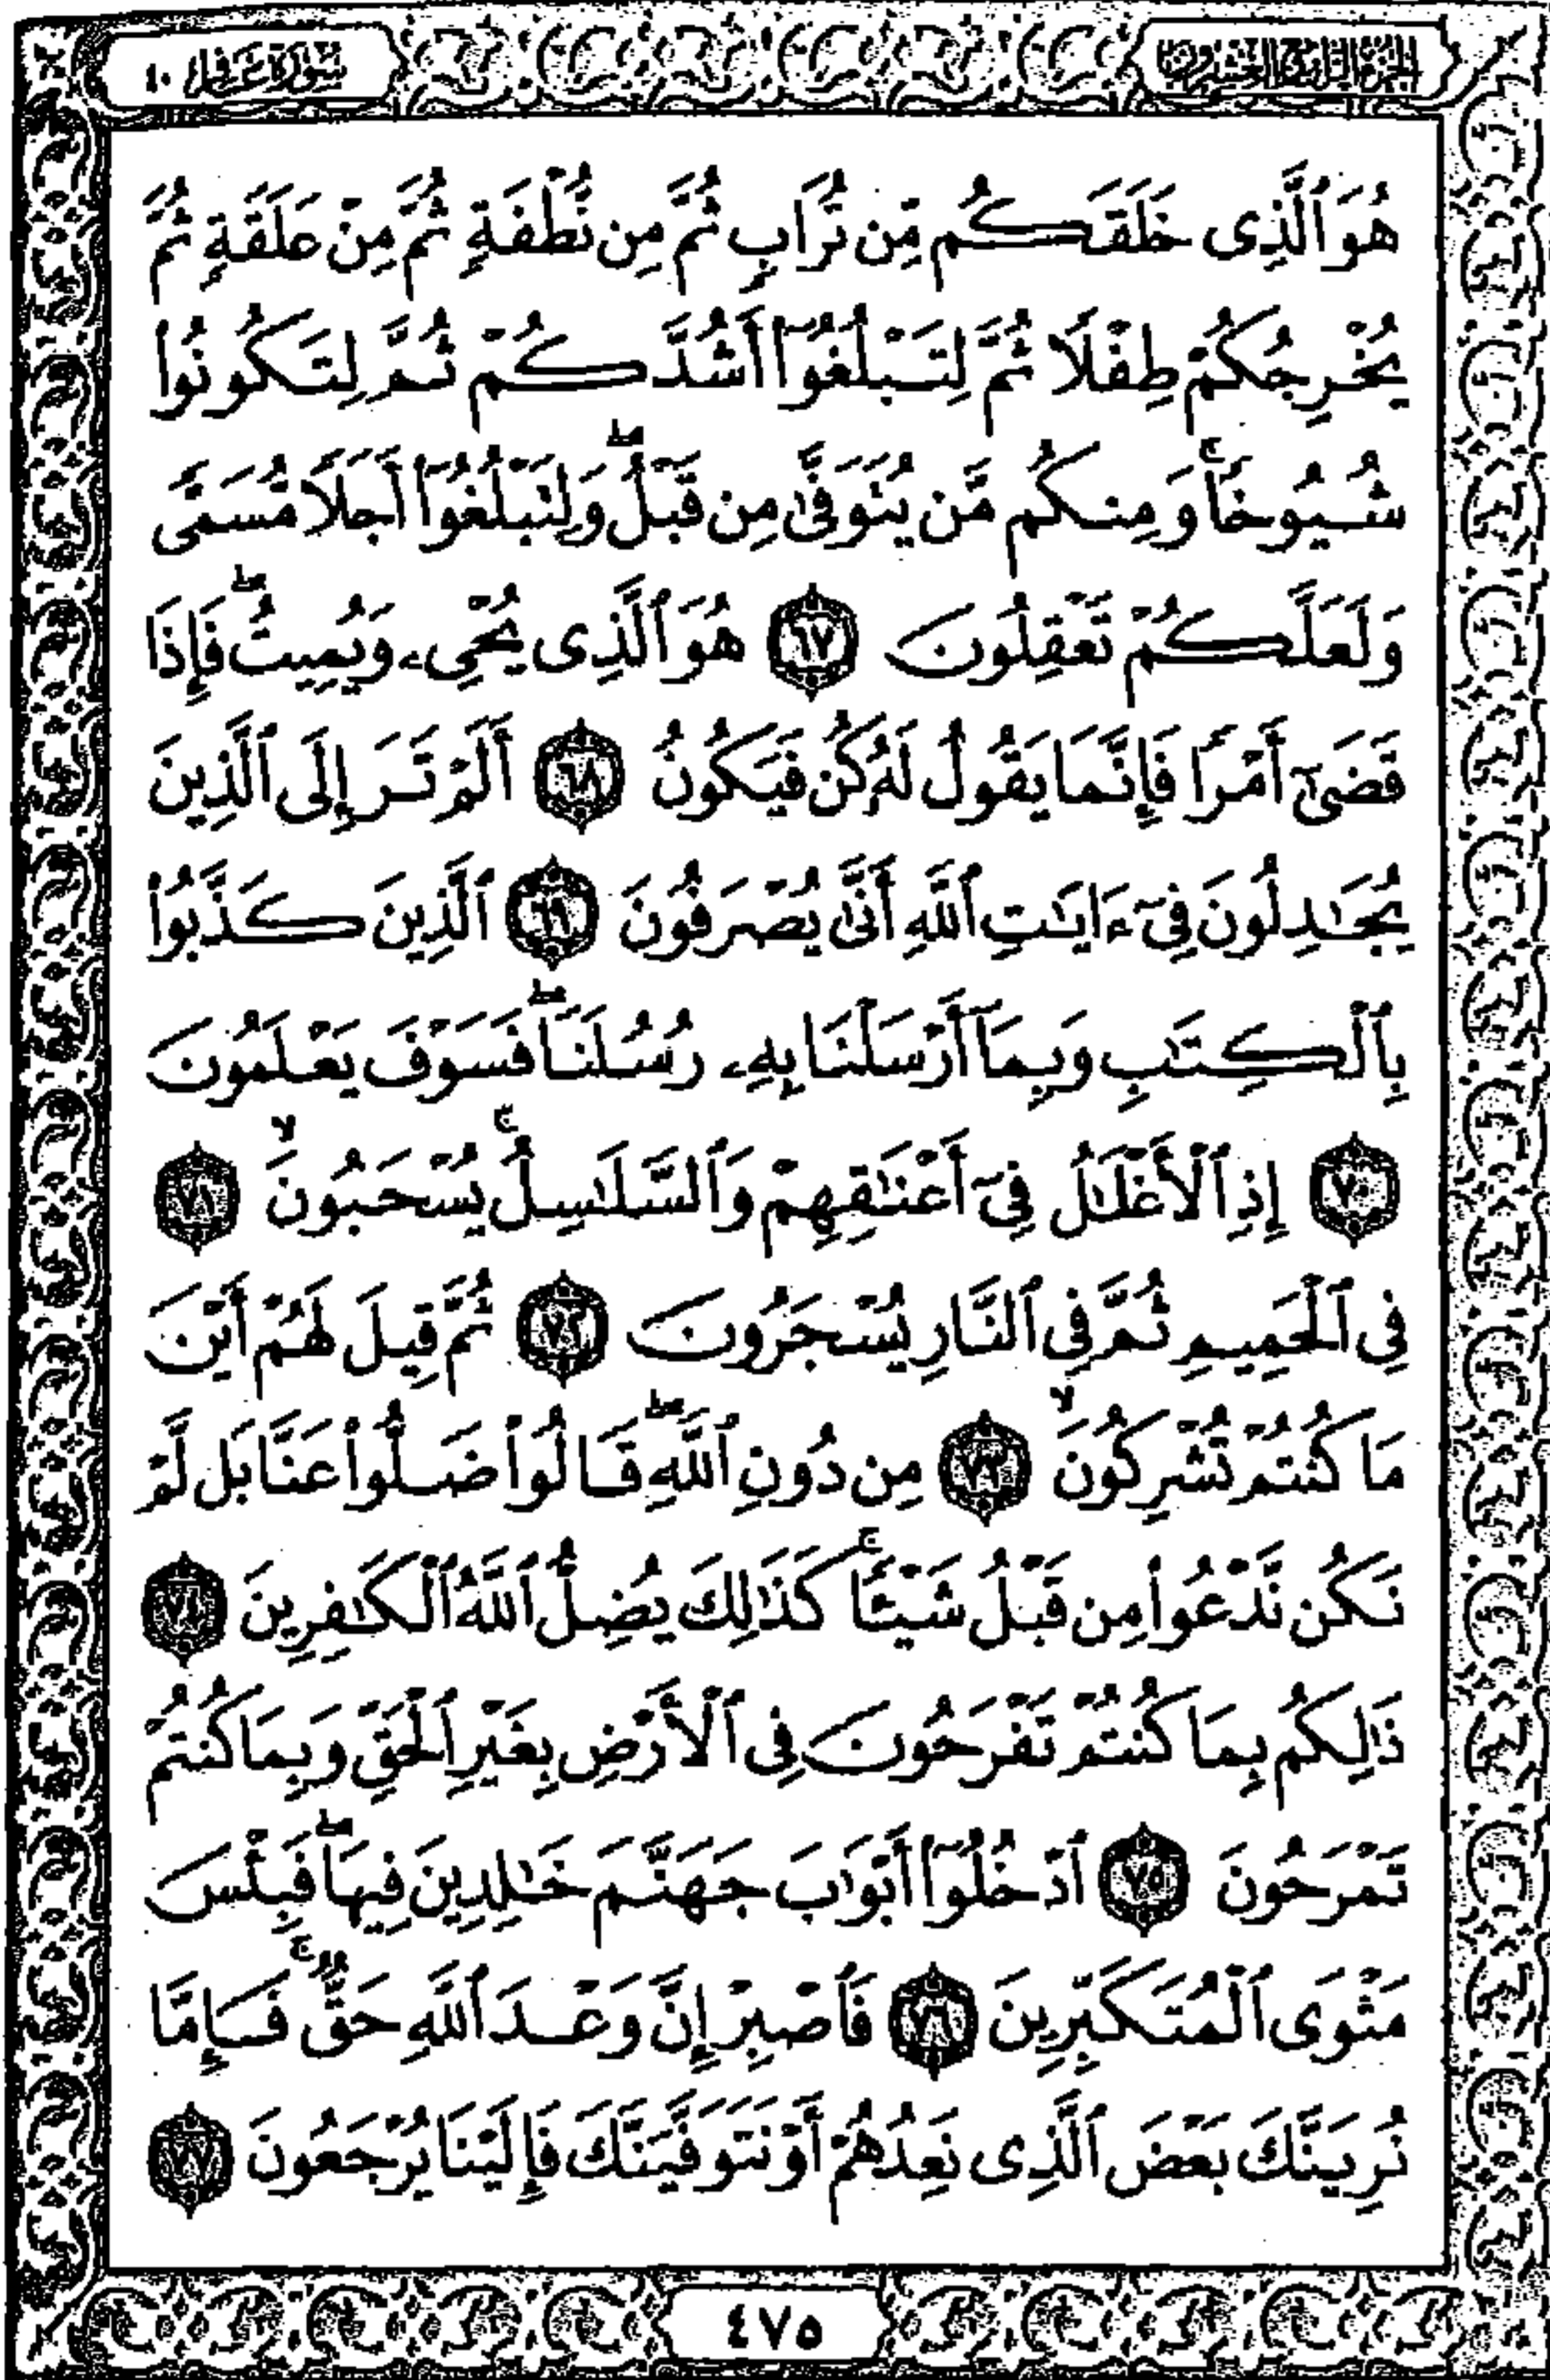 الجزء الرابع والعشرون
سورة غافر ٤٠
هُوَ ٱلَّذِى خَلَقَكُم مِّن تُرَابٍ ثُمَّ مِن نُّطْفَةٍ ثُمَّ مِنْ عَلَقَةٍ ثُمَّ
يُخْرِجُكُمْ طِفْلًا ثُمَّ لِتَبْلُغُوٓا۟ أَشُدَّكُمْ ثُمَّ لِتَكُونُوا۟
شُيُوخًا ۚ وَمِنكُم مَّن يُتَوَفَّىٰ مِن قَبْلُ ۖ وَلِتَبْلُغُوٓا۟ أَجَلًا مُّسَمًّى
وَلَعَلَّكُمْ تَعْقِلُونَ ٦٧ هُوَ ٱلَّذِى يُحْىِۦ وَيُمِيتُ ۖ فَإِذَا
قَضَىٰٓ أَمْرًا فَإِنَّمَا يَقُولُ لَهُۥ كُن فَيَكُونُ ٦٨ أَلَمْ تَرَ إِلَى ٱلَّذِينَ
يُجَٰدِلُونَ فِىٓ ءَايَٰتِ ٱللَّهِ أَنَّىٰ يُصْرَفُونَ ٦٩ ٱلَّذِينَ كَذَّبُوا۟
بِٱلْكِتَٰبِ وَبِمَآ أَرْسَلْنَا بِهِۦ رُسُلَنَا ۖ فَسَوْفَ يَعْلَمُونَ
٧٠ إِذِ ٱلْأَغْلَٰلُ فِىٓ أَعْنَٰقِهِمْ وَٱلسَّلَٰسِلُ ۚ يُسْحَبُونَ ۙ ٧١
فِى ٱلْحَمِيمِ ثُمَّ فِى ٱلنَّارِ يُسْجَرُونَ ٧٢ ثُمَّ قِيلَ لَهُمْ أَيْنَ
مَا كُنتُمْ تُشْرِكُونَ ۙ ٧٣ مِن دُونِ ٱللَّهِ ۖ قَالُوا۟ ضَلُّوا۟ عَنَّا بَل لَّمْ
نَكُن نَّدْعُوا۟ مِن قَبْلُ شَيْـًٔا ۚ كَذَٰلِكَ يُضِلُّ ٱللَّهُ ٱلْكَٰفِرِينَ ٧٤
ذَٰلِكُم بِمَا كُنتُمْ تَفْرَحُونَ فِى ٱلْأَرْضِ بِغَيْرِ ٱلْحَقِّ وَبِمَا كُنتُمْ
تَمْرَحُونَ ٧٥ ٱدْخُلُوٓا۟ أَبْوَٰبَ جَهَنَّمَ خَٰلِدِينَ فِيهَا ۖ فَبِئْسَ
مَثْوَى ٱلْمُتَكَبِّرِينَ ٧٦ فَٱصْبِرْ إِنَّ وَعْدَ ٱللَّهِ حَقٌّ ۚ فَإِمَّا
نُرِيَنَّكَ بَعْضَ ٱلَّذِى نَعِدُهُمْ أَوْ نَتَوَفَّيَنَّكَ فَإِلَيْنَا يُرْجَعُونَ ٧٧
٤٧٥